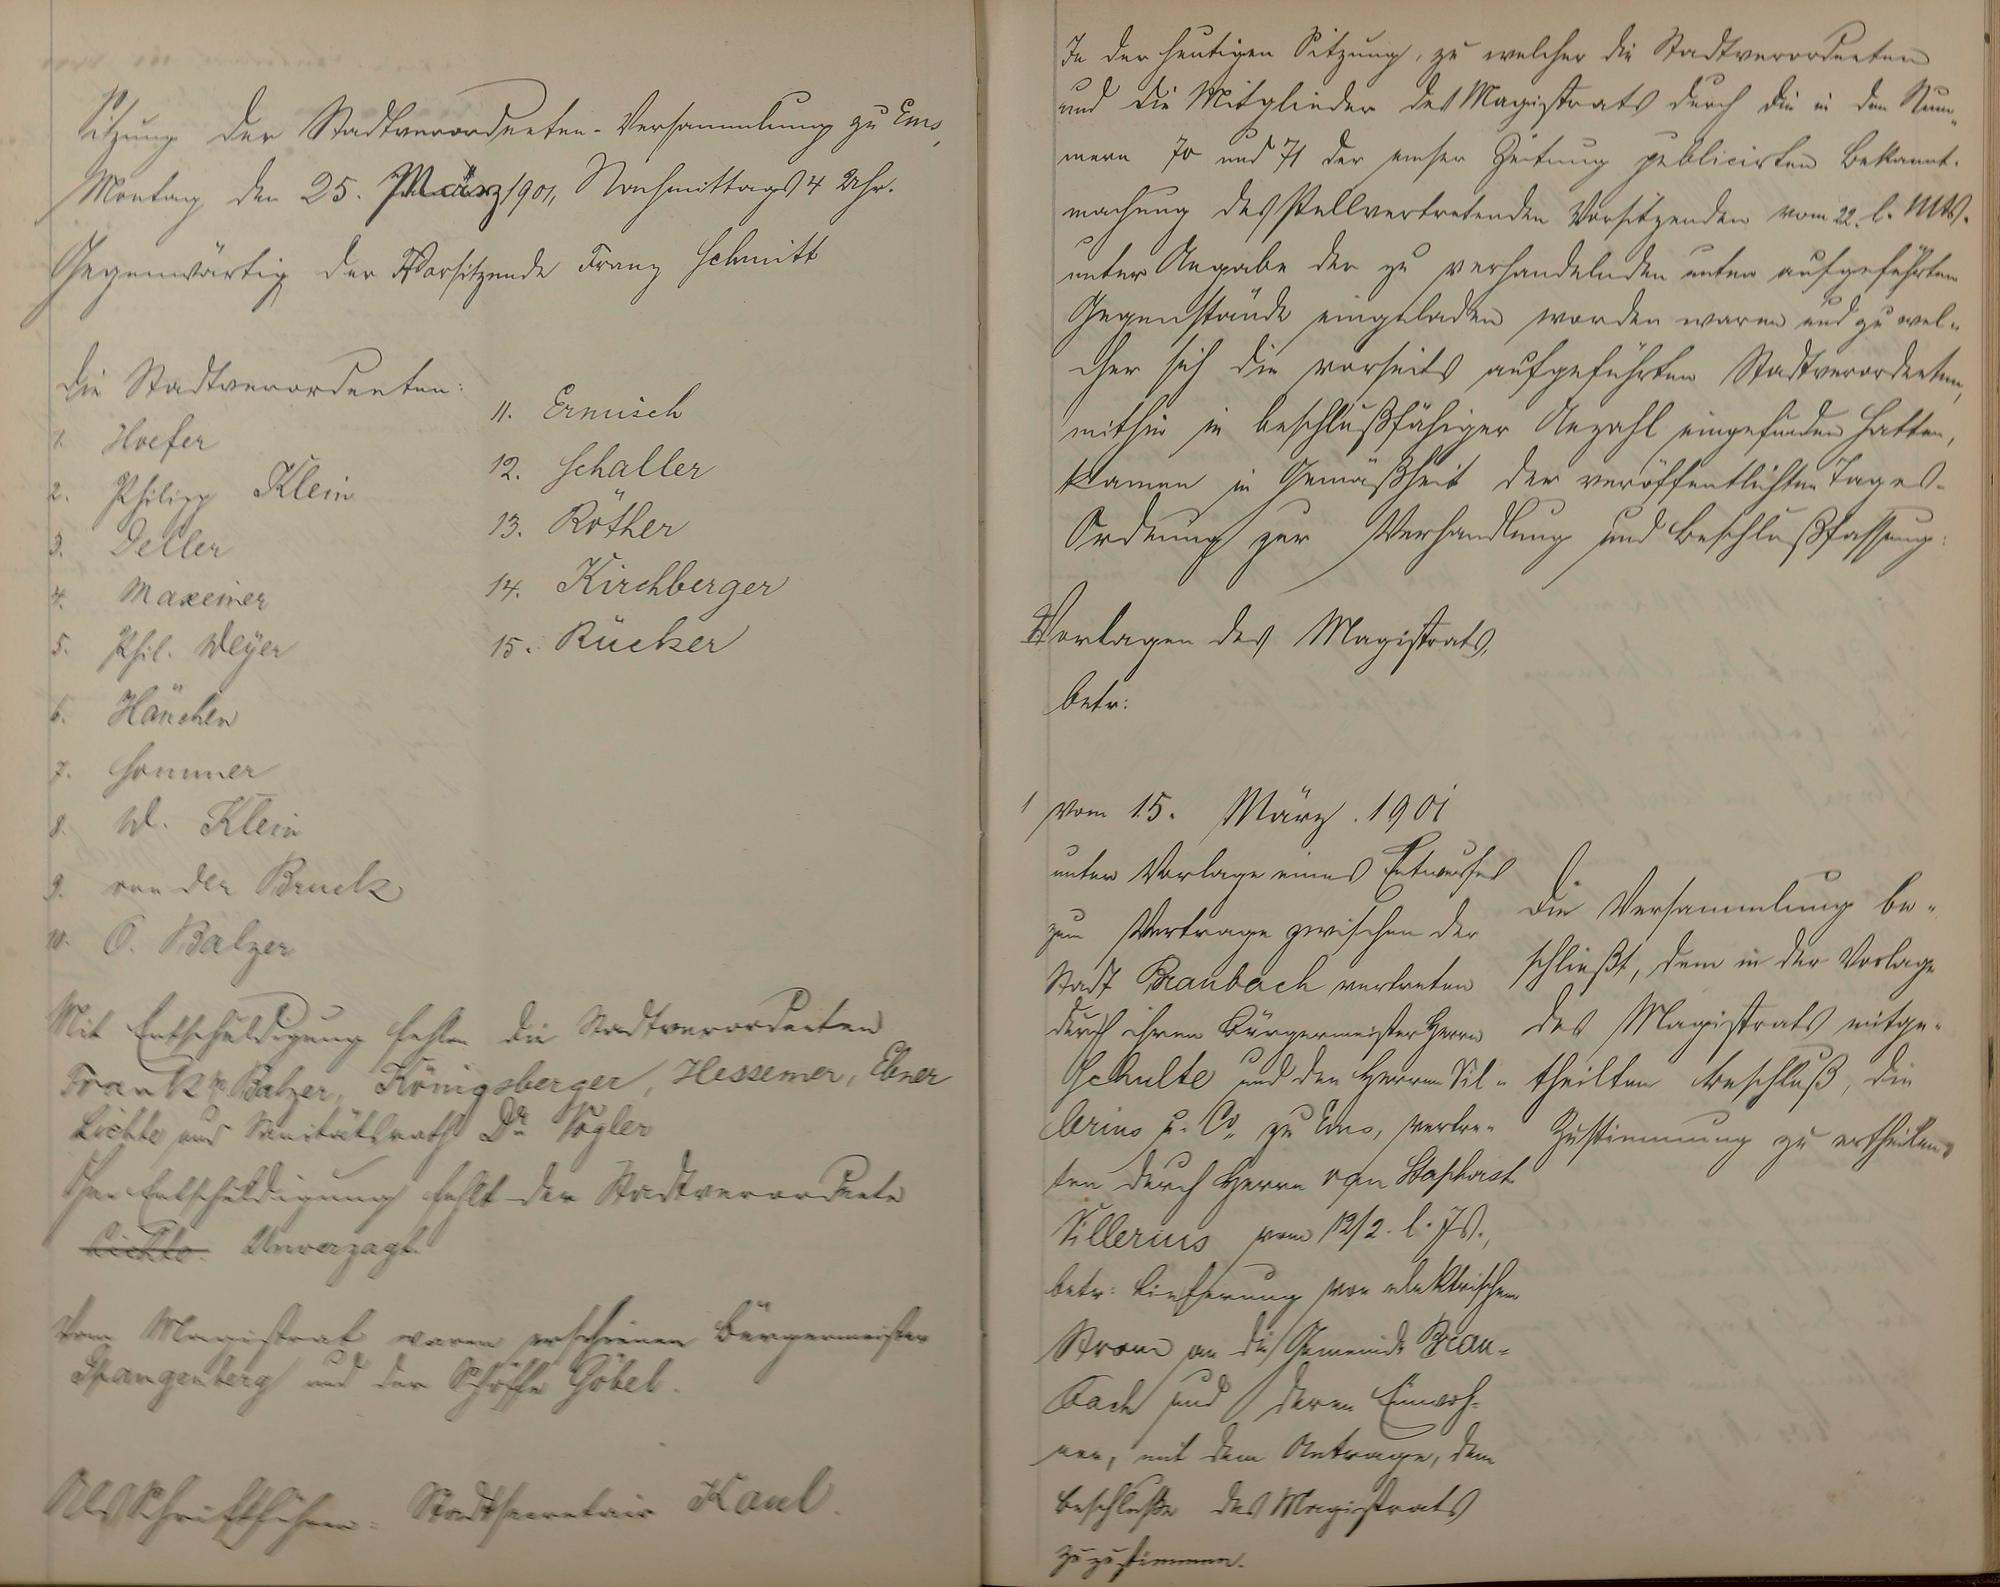 Sitzung der Stadtverordneten-Versammlung zu Ems,
Montag den 25. März 1901, Nachmittags 4 Uhr.
Gegenwärtig der Vorsitzende Franz Schmitt
die Stadtverordneten:
1. Hoefer
2. Philipp Klein
3. Deller
4. Maxeiner
5. Phil. Weyer
6. Hänchen
7. Sommer
8. W. Klein
9. von der Bruck
10. O. Balzer
11. Ermisch
12. Schaller
13. Röther
14. Kirchberger
15. Rücker
Mit Entschuldigung fehlen die Stadtverordneten
Frank, Balzer, Königsberger, Hessemer, Ebner
Lichte und Sanitätsrath Dr. Vogler
Ohne Entschuldigung fehlt der Stadtverordnete
Lichte. Unverzagt.
Vom Magistrat waren erschienen Bürgermeister
Spangenberg und der Schöffe Göbel.
Als Schriftführer: Stadtsecretair Kaul.
In der heutigen Sitzung, zu welcher die Stadtverordneten
und die Mitglieder des Magistrats durch die in den Num-
mern 70 und 71 der Emser Zeitung publicirten Bekannt-
machung des stellvertretenden Vorsitzenden vom 22. l. Mts.
unter Angabe der zu verhandelnden unten aufgeführten
Gegenstände eingeladen worden waren und zu wel-
cher sich die vorseits aufgeführten Stadtverordneten,
mithin in beschlußfähiger Anzahl eingefunden hatten,
kamen in Gemäßheit der veröffentlichten Tages-
Ordnung zur Verhandlung und Beschlußfassung:
Vorlagen des Magistrats,
betr:
1 vom 15. März. 1901
unter Vorlage eines Entwurfes
zum Vertrage zwischen der
Stadt Braubach vertreten
durch ihren Bürgermeister Herrn
Schulte und den Herren Sil-
lerius u. Co. zu Ems, vertre-
ten durch Herrn
Sillerius vom 12/2. l. Js.,
betr: Lieferung von elektrischem
Strom an die Gemeinde Brau-
bach und deren Einwoh-
ner, mit dem Antrage, dem
Beschlusse des Magistrats
zuzustimmen.
Die Versammlung be-
schließt, dem in der Vorlage
des Magistrats mitge-
theilten Beschluß, die
Zustimmung zu ertheilen.